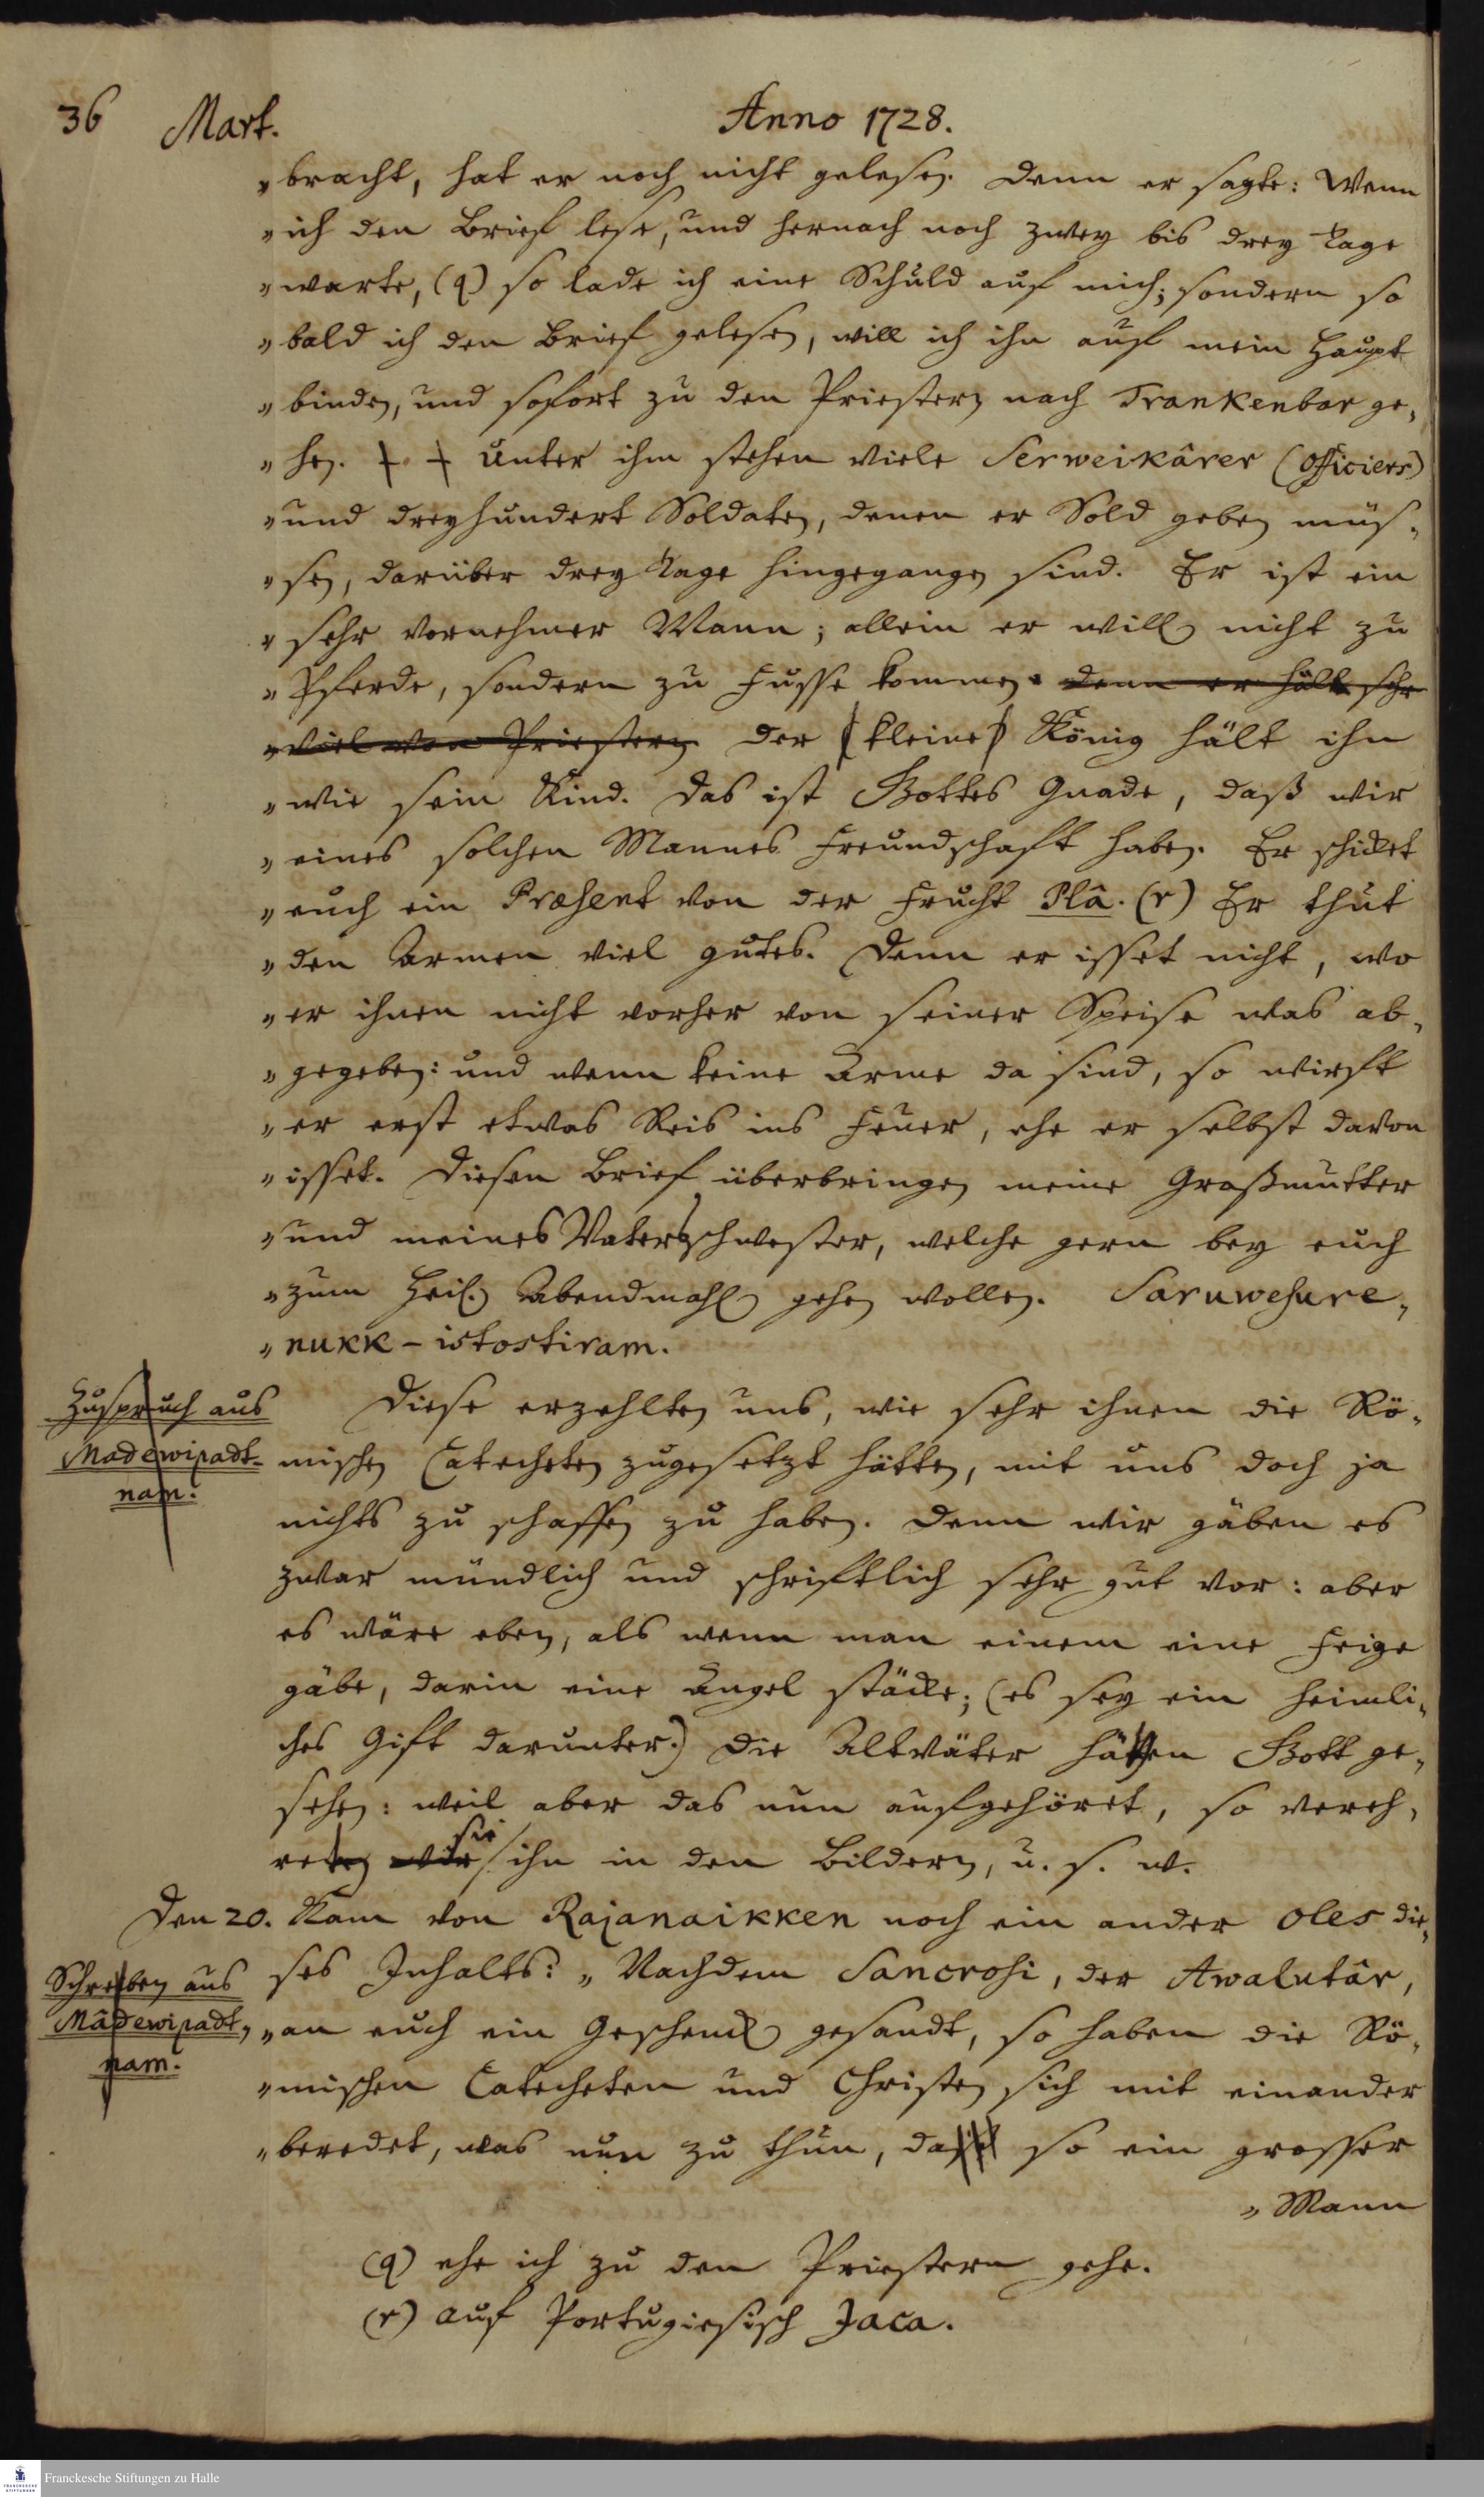 36 Mart. Anno 1728.
„bracht, hat er noch nicht gelesen. Denn er sagte: Wenn
„ich den Brief lese, und hernach noch zwey bis drey Tage
„warte, (q) so lade ich eine Schuld auf mich; sondern so
„bald ich den Brief gelesen, will ich ihn auf mein Haupt
„binden, und sofort zu den Priestern nach Trankenbar ge„
„hen. ‡ ‡ Unter ihm stehen viele Serweikârer (Officiers)
„und dreyhundert Soldaten, denen er Sold geben müs„
„sen, darüber drey Tage hingegangen sind. Er ist ein
„sehr vornehmer Mann; allein er will nicht zu
„Pferde, sondern zu Fusse kommen. denn er hält sehr
„viel von Priestern. Der (kleine) König hält ihn
„wie sein Kind. Das ist Gottes Gnade, daß wir
„eines solchen Mannes Freundschaft haben. Er schicket
„euch ein Præsent von der Frucht Plâ. (r) Er thut
„den Armen viel gutes. Denn er isset nicht, wo
„er ihnen nicht vorher von seiner Speise was ab„
„gegeben: und wenn keine Arme da sind, so wirft
„er erst etwas Reis ins Feuer, ehe er selbst davon
„isset. Diesen Brief überbringen meine Großmutter
„und meines Vaters schwester, welche gern bey euch
„zum Heil. Abendmahl gehen wollen. Saruwesure„
„nukk-istostiram.
Zuspruch aus
Madewipadt-
nam.
Diese erzehlten uns, wie sehr ihnen die Rö„
mischen Catecheten zugesetzt hätten, mit uns doch ja
nichts zu schaffen zu haben. Denn wir gäben es
zwar mündlich und schriftlich sehr gut vor: aber
es wäre eben, als wenn man einem eine Feige
gäbe, darin eine Angel stäcke; (es sey ein heimli„
ches Gift darunter.) Die Altväter hätten Gott ge„
sehen: weil aber das nun aufgehöret, so vereh„
reten wir sie ihn in den Bildern, u. s. w.
Den 20. Kam von Rajanaikken noch ein ander Oles die„
Schreiben aus
Mâdewipadt„
nam.
ses Inhalts: „Nachdem Sancrosi, der Awalutâr,
„an euch ein Geschenck gesandt, so haben die Rö„
„mischen Catecheten und Christen sich mit einander
„beredet, was nun zu thun, da so ein grosser
„Mann
(q) ehe ich zu den Priestern gehe.
(r) auf Portugiesisch Jaca.
Franckesche Stiftungen zu Halle